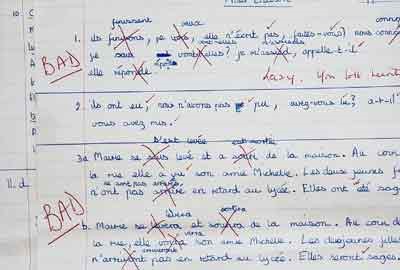 finissent veux
1. ils finissons, je vois, elle n'écrit pas, faites-vous? nous
je suis vont-elles? je m'assied, appelle-t-il
BAD
elle réponde
Lazy.
2. ils ont eu, nous n'avons pas pu, avez-vous lu? a-t-il
vous avez mis.
s'est levée est sortie
3a Marie se suis levé et a sorti de la maison. Au cour
la rue elle a vu son amie Michelle. Les deux jeunes
ne sont pas arrivés
n'ont pas arrivé en retard au lycée. Elles ont été sag
11. d.
BAD
lèvera sortira
b. Marie se lèvera et sortira de la maison. Au cour d
verra
la rue, elle voyra son amie Michelle. Les deux jeunes filles
n'arriveront pas en retard au lycée. Elles seront sages.